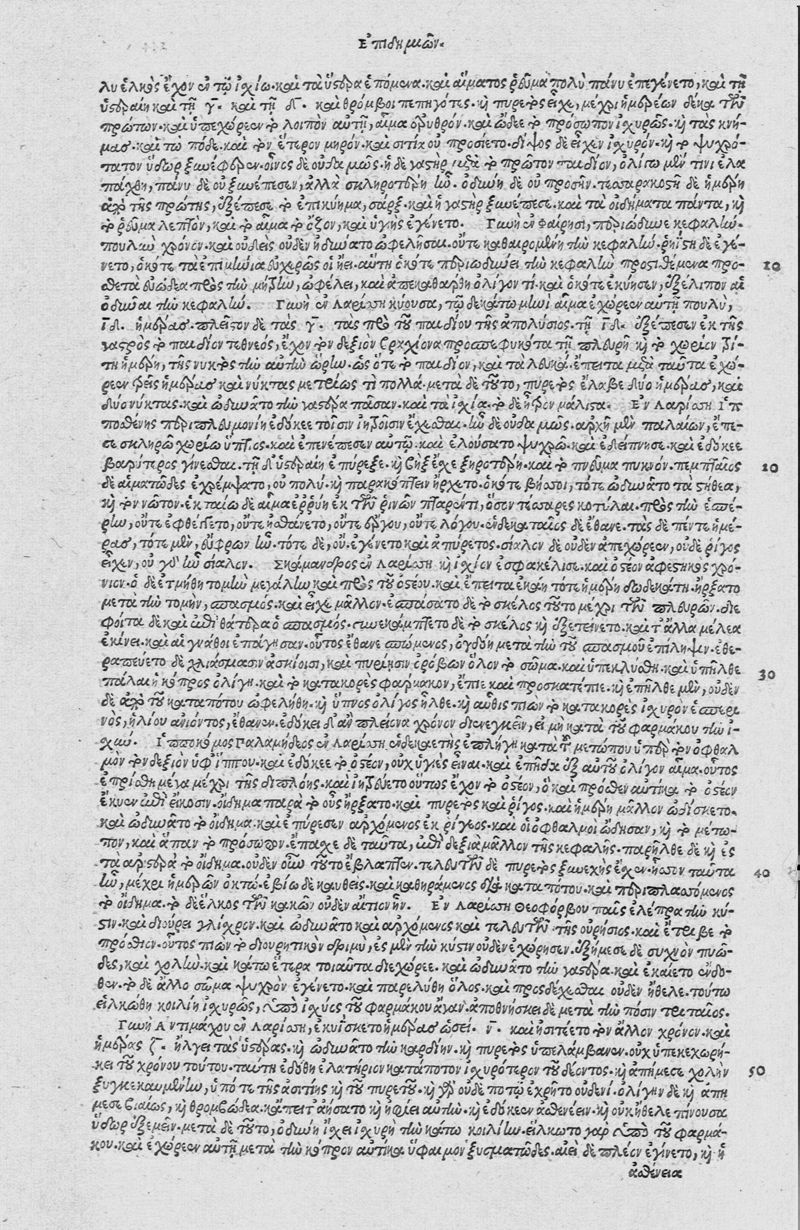 Ἐπιδημιῶν.
λυ ἕλκος ἔχον ἐν τῷ ἰσχίῳ. καὶ τὰ ὕστερα ἑπόμενα. καὶ αἵματος ῥεῦμα πολὺ πάνυ ἐπεγένετο, καὶ τῇ
ὑστεραίῃ καὶ τῇ γ. καὶ τῇ δ. καὶ θρόμβοι πεπηγότες. καὶ πυρετὸς εἶχε, μέχρι ἡμερέων δέκα τῶν
πρώτων. καὶ ὑπεχώρεεν τὸ λοιπὸν αὐτῇ, αἷμα ἐρυθρόν. καὶ ᾤδεε τὸ πρόσωπον ἰσχυρῶς. καὶ τὰς κνή-
μας. καὶ τὼ πόδε. καὶ τὸν ἕτερον μηρόν. καὶ σιτία οὐ προσίετο. δίψος δὲ εἶχεν ἰσχυρόν. καὶ ψυχρό-
τατον ὕδωρ ξυνέφερεν. οἶνος δὲ οὐδαμῶς. ἡ δὲ γαστὴρ μετὰ τὸ πρῶτον παιδίον, ὀλίγῳ μέν τινι ἐλα
πάχθη, πάνυ δὲ οὐ ξυνέπεσεν, ἀλλὰ σκληροτέρη ἦν. ὀδύνη δὲ οὐ προσῆν. τεσσαρακοστῇ δὲ ἡμέρῃ
ἀπὸ τῆς πρώτης, ἐξέπεσε τὸ ἐπικύημα, σάρξ. καὶ ἡ γαστὴρ ξυνέπεσε. καὶ τὰ οἰδήματα πάντα, καὶ
τὸ ῥεῦμα λεπτὸν, καὶ τὸ αἷμα τὸ ὄζον, καὶ ὑγιὴς ἐγένετο. Γυνὴ ἐν Φαίρῃσι, περιώδυνε κεφαλὴν.
πουλὺν χρόνον. καὶ οὐδεὶς οὐδὲν ἠδύνατο ὠφελῆσαι. οὔτε καθαιρομένη τὴν κεφαλὴν. ῥηΐστη δὲ ἐγέ-
νετο, ὁκότε τὰ ἐπιμήνια εὐχερῶς οἱ ᾔει. αὕτη ὁκότε περιωδυνέοι τὴν κεφαλὴν προστιθέμενα προ-
σθετὰ εὐώδεα πρὸς τὴν μήτρην, ὠφέλει, καὶ ἀπεκαθάρθη ὀλίγον τι. καὶ ὁκότε ἐκύησεν, ἐξέλιπον αἱ
ὀδύναι τὴν κεφαλὴν. Γυνὴ ἐν Λαρίσῃ κύουσα, τῷ δεκάτῳ μηνὶ αἷμα ἐχώρεεν αὐτῇ πουλὺ,
ιδ. ἡμέρας. πλεῖστον δὲ τὰς γ. τὰς πρὸ τοῦ παιδίου τῆς ἀπολύσιος. τῇ ιδ. ἐξέπεσεν ἐκ τῆς
γαστρὸς τὸ παιδίον τεθνεὸς, ἔχον τὸν δεξιὸν βραχίονα προσπεφυκότα τῇ πλευρῇ. καὶ τὸ χωρίον τρί-
τῃ ἡμέρῃ, τῆς νυκτὸς τὴν αὐτὴν ὥρην. ὡς ὅτε τὸ παιδίον, καὶ τὰ λευκὰ. ἔπειτα μετὰ ταῦτα ἐχώ-
ρεεν τρεῖς ἡμέρας καὶ νύκτας μετρίως τὶ πολλά. μετὰ δὲ τοῦτο, πυρετὸς ἔλαβε δύο ἡμέρας, καὶ
δύο νύκτας. καὶ ὠδυνᾶτο τὴν γαστέρα πᾶσαν. καὶ τὰ ἰσχία. τὸ δὲ ἦτρον μάλιστα. Ἐν Λαρίσῃ Ἱπ
ποσθένης περιπλευμονίῃ ἐδόκεε τοῖσιν ἰητροῖσιν ἔχεσθαι. ἦν δὲ οὐδαμῶς. ἀρχὴ μὲν παλαίων, ἔπε-
σε σκληρῷ χωρίῳ ὕπτιος. καὶ ἐπενέπεσεν αὐτῷ. καὶ ἐλούσατο ψυχρῷ. καὶ ἐδείπνησε. καὶ ἐδόκεε
βαρύτερος γίνεσθαι. τῇ δ᾽ ὑστεραίῃ ἐπύρεξε. καὶ βὴξ ἔσχε ξηροτέρη. καὶ τὸ πνεῦμα πυκνόν. πεμπταῖος
δὲ αἱματῶδες ἐχρέμψατο, οὐ πολὺ. καὶ παρακόπτειν ἤρχετο. ὁκότε βήσσοι, τότε ὠδυνᾶτο τὰ στήθεα,
καὶ τὸν νῶτον. ἑκταίῳ δὲ αἷμα ἐῤῥύη ἐκ τῶν ῥινῶν πταρόντι, ὅσον τέσσαρες κοτύλαι. πρὸς τὴν ἑσπέ-
ρην, οὔτε ἐφθέγγετο, οὔτε ᾐσθάνετο, οὔτε ἔργου, οὔτε λόγου. ἑνδεκαταῖος δὲ ἔθανε. τὰς δὲ πέντε ἡμέ-
ρας, τότε μὲν, εὔφρων ἦν. τότε δὲ, οὔ. ἐγένετο καὶ ἀπύρετος. σίαλον δὲ οὐδὲν ἀπεχώρεεν, οὐδὲ ῥῖγος
εἶχεν, οὐ γὰρ ἦν σίαλον. Σκάμανδρος ἐν Λαρίσῃ καὶ ἰσχίον ἐσφακέλισε. καὶ ὀστέον ἀφεστηκὸς χρό-
νιον. ὁ δὲ ἐτμήθη τομὴν μεγάλην καὶ πρὸς τοῦ ὀστέου. καὶ ἔπειτα ἐκάη τότε ἡμέρῃ δωδεκάτῃ ἤρξατο
μετὰ τὴν τομὴν, σπασμὸς. καὶ εἶχε μᾶλλον. ἐσπάσατο δὲ τὸ σκέλος τοῦτο μέχρι τῶν πλευρῶν. διε
φοίτα δὲ καὶ ἐπὶ θάτερα ὁ σπασμός. συνεκάμπτετο δὲ τὸ σκέλος καὶ ἐξετείνετο. καὶ τ᾽ ἄλλα μέλεα
ἐκίνει. καὶ αἱ γνάθοι ἐπάγησαν. οὗτος ἔθανε σπώμενος, ὀγδόῃ μετὰ τὴν τοῦ σπασμοῦ ἐπίληψιν. ἐθε-
ραπεύετο δὲ χλιάσμασιν ἀσκίοισι, καὶ πυριῇσιν ὀρόβων ὅλον τὸ σῶμα. καὶ ὑπεκλύσθη. καὶ ὑπῆλθε
παλαιὴ κόπρος ὀλίγη. καὶ τὸ κατακορὲς φάρμακον, ἔπιε καὶ προσκατέπιε. καὶ ἐπῆλθε μὲν, οὐδὲν
δὲ ἀπὸ τοῦ καταπότου ὠφελήθη. καὶ ὕπνος ὀλίγος ἦλθε. καὶ αὖθις πιὼν τὸ κατακορὲς ἰσχυρὸν ἑσπερι
νὸς, ἡλίου ἀνιόντος, ἔθανεν. ἐδόκει δ᾽ ἂν πλείονα χρόνον διενεγκεῖν, εἰ μὴ κατὰ τοῦ φαρμάκου τὴν ἰ-
σχύν. Ἱπποκόμος Παλαμήδεος ἐν Λαρίσῃ ἑνδεκαέτης ἐπλήγη κατὰ τοῦ μετώπου ὑπὲρ τὸν ὀφθαλ
μὸν τὸν δεξιὸν ὑφ᾽ ἵππου. καὶ ἐδόκεε τὸ ὀστέον, οὐχ ὑγιὲς εἶναι. καὶ ἐπήδα ἐξ αὐτοῦ ὀλίγον αἷμα. οὗτος
ἐπρίσθη μέγα μέχρι τῆς διπλόης. καὶ ἰητρεύετο οὕτως ἔχον τὸ ὀστέον, ὃ καὶ πρόσθεν αὐτίκα τὸ ὀστέον
ἔκυεν ἐπὶ εἴκοσιν. οἴδημα παρὰ τὸ οὖς ἤρξατο. καὶ πυρετὸς καὶ ῥῖγος. καὶ ἡμέρῃ μᾶλλον ᾠδίσκετο.
καὶ ὠδυνᾶτο τὸ οἴδημα. καὶ ἐπύρεσεν ἀρχόμενος ἐκ ῥίγεος. καὶ οἱ ὀφθαλμοὶ ᾤδησαν, καὶ τὸ μέτω-
πον, καὶ ἅπαν τὸ πρόσωπον. ἔπασχε δὲ ταῦτα, ἐπὶ δεξιὰ μᾶλλον τῆς κεφαλῆς. παρῆλθε δὲ καὶ ἐς
τὰ ἀριστερὰ τὸ οἴδημα. οὐδὲν οὖν τοῦτο ἔβλαπτεν. τελευτῶν δὲ πυρετὸς ξυνεχὴς ἔχεν. ἧσσον ταῦτα
ἦν, μέχρι ἡμερῶν ὀκτώ. ἐβίω δὲ καυθεὶς. καὶ καθηράμενος διὰ καταπότου. καὶ περιπλασσόμενος
τὸ οἴδημα. τὸ δὲ ἕλκος τῶν κακῶν οὐδὲν αἴτιον ἦν. Ἐν Λαρίσῃ Θεοφόρβου παῖς ἐλέπρα τὴν κύ-
στιν. καὶ διούρει γλίσχρον. καὶ ὠδυνᾶτο καὶ ἀρχόμενος καὶ τελευτῶν τῆς οὐρήσιος. καὶ ἔτριβε τὸ
πρόσθιον. οὗτος πιὼν τὸ διουρητικὸν δριμὺ, ἐς μὲν τὴν κύστιν οὐδὲν ἐχώρησεν. ἐξήμεσε δὲ συχνὸν πυῶ-
δες, καὶ χολὴν. καὶ κάτω ἕτερα τοιαῦτα διεχώρεε. καὶ ὠδυνᾶτο τὴν γαστέρα. καὶ ἐκαίετο ἔνδο-
θεν. τὸ δὲ ἄλλο σῶμα ψυχρὸν ἐγένετο. καὶ παρελύθη ὅλος. καὶ προσδέχεσθαι οὐδὲν ἤθελε. τούτῳ
εἱλκώθη κοιλίη ἰσχυρῶς, ὑπὸ ἰσχύος τοῦ φαρμάκου ἄγαν. ἀποθνήσκει δὲ μετὰ τὴν πόσιν τριταῖος.
Γυνὴ Ἀντιμάχου ἐν Λαρίσῃ, ἐκυΐσκετο ἡμέρας ὡσεὶ. ν. καὶ ἠσιτέετο τὸν ἄλλον χρόνον. καὶ
ἡμέρας ζ. ἤλγει τὰς ὑστέρας. καὶ ὠδυνᾶτο τὴν καρδίην. καὶ πυρετὸς ὑπελάμβανεν. οὐχ ὑπεκεχωρή-
κει τοῦ χρόνου τούτου. ταύτῃ ἐδόθη ἐλατήριον κατάποτον ἰσχυρότερον τοῦ δέοντος. καὶ ἀπήμεσε χολὴν
ξυγκεκαυμένην, ὑπό τε τῆς ἀσιτίης καὶ τοῦ πυρετοῦ. καὶ γὰρ οὐδὲ ποτῷ ἐχρῆτο οὐδενὶ. ὀλίγην δὲ καὶ ἀπή
μεσε βιαίως, καὶ θρομβώδεα. κἄπειτ᾽ ἀήσατο καὶ ἠφίει αὐτὴν. καὶ ἐδόκεεν ἀσθενέειν. καὶ οὐκ ἤθελε πίνουσα
ὕδωρ ἐξεμεῖν. μετὰ δὲ τοῦτο, ὀδύνη ἴσχει ἰσχυρὴ τὴν κάτω κοιλίην. εἵλκωτο γὰρ ὑπὸ τοῦ φαρμά-
κου. καὶ ἐχώρεεν αὐτῇ μετὰ τὴν κόπρον αὐτίκα ὕφαιμον ξυσματῶδες. αἰεὶ δὲ πλέον ἐγίνετο, καὶ ἡ
ἀσθένεια
10
10
30
40
50